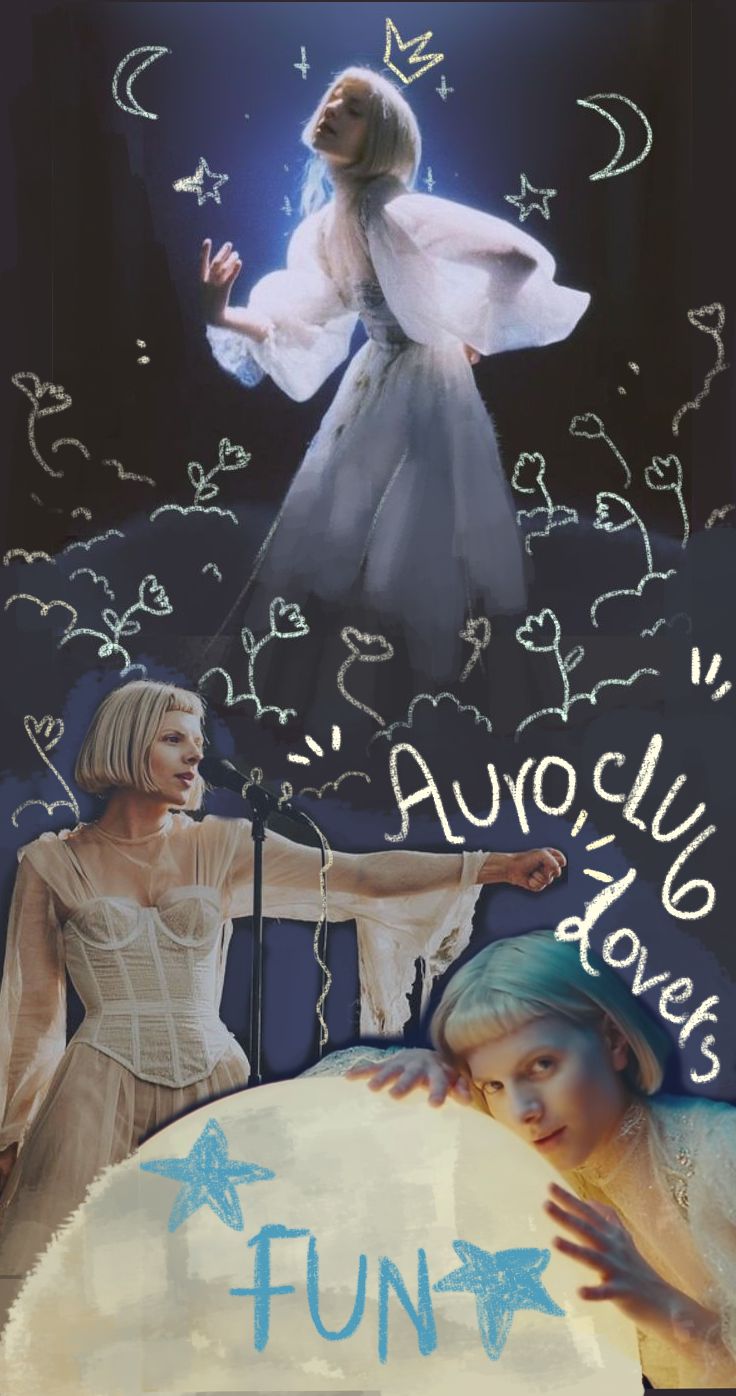 Auro.club
Lovers
FUN